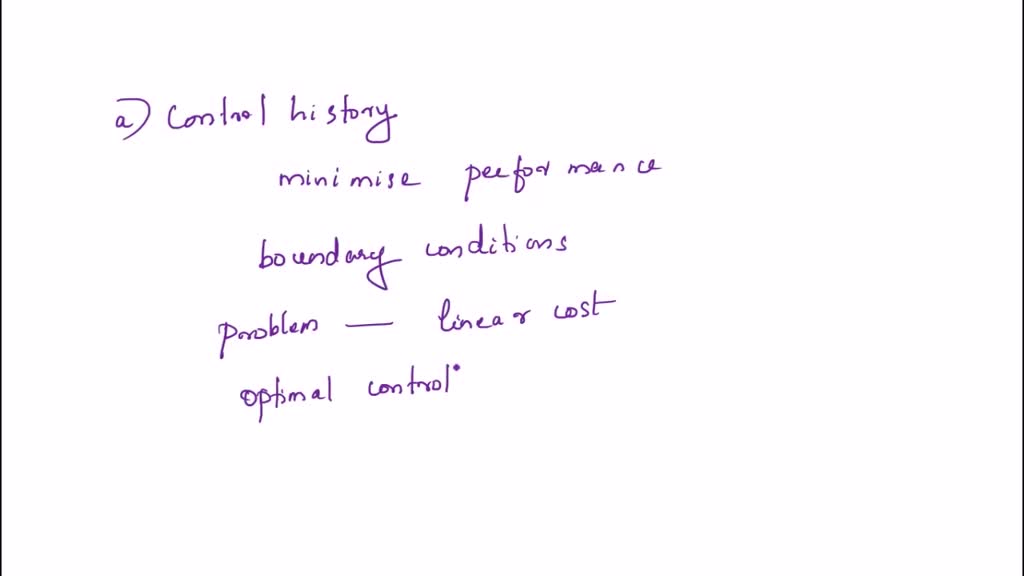 a) Control history
minimise performance
boundary conditions
problem — linear cost
optimal control